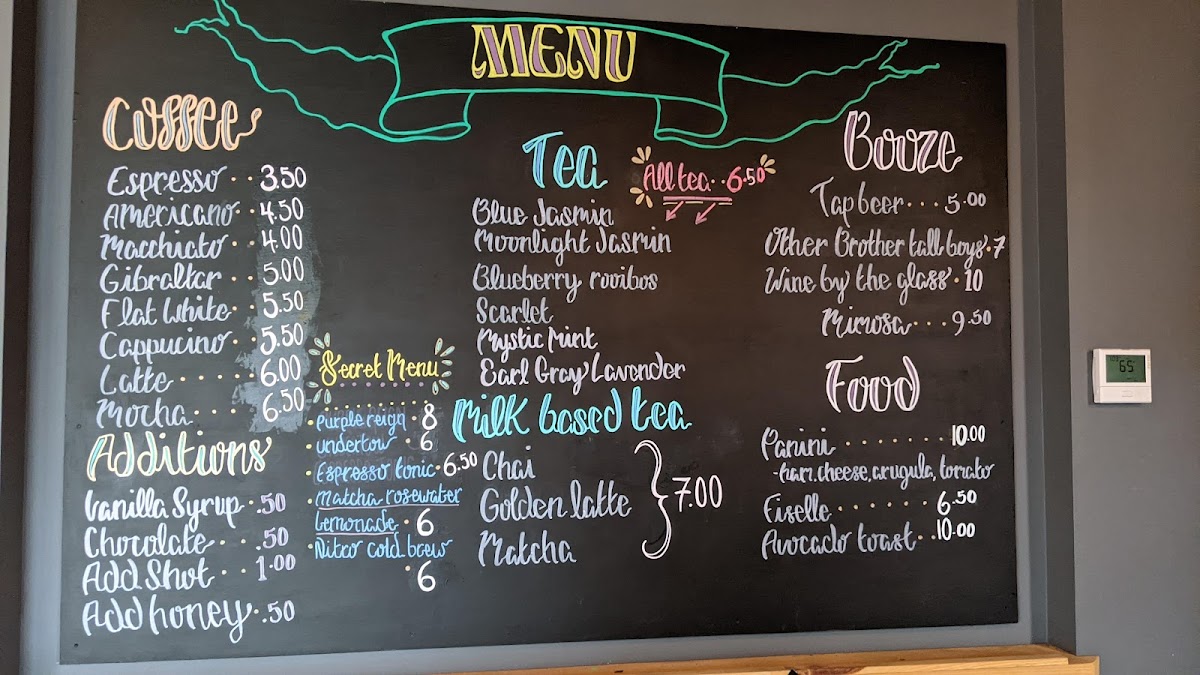 MENU
Coffee
Espresso . . 3.50
Americano . . 4.50
Macchiato . . 4.00
Gibraltar . . 5.00
Flat White . . 5.50
Cappucino . . 5.50
Latte . . . . . 6.00
Mocha . . . . 6.50
Additions
Vanilla Syrup . .50
Chocolate . . .50
Add Shot . . 1.00
Add honey . .50
Secret Menu
. Purple reign . 8
. undertow . 6
. Espresso tonic . 6.50
. Matcha rosewater
Lemonade . 6
. Nitro cold brew
. 6
Tea
All tea . . 6.50
Blue Jasmin
Moonlight Jasmin
Blueberry rooibos
Scarlet
Mystic Mint
Earl Gray Lavender
Milk based tea
Chai
Golden latte
Matcha
7.00
Booze
Tap beer . . . 5.00
Other Brother tall boys . 7
Wine by the glass . 10
Mimosa . . . . 9.50
Food
Panini . . . . . . . 10.00
-ham, cheese, arugula, tomato
Fiselle . . . . . . 6.50
Avocado toast . . 10.00
65